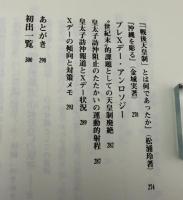 『「戦後天皇制」とは何であったか』（松浦玲著） 274
『沖縄を彫る』（金城実著） 278
プレXデー・アンソロジー
“世紀末”的課題としての天皇制廃絶 282
皇太子訪沖阻止のたたかいの運動的射程 287
皇太子訪沖報道とXデー状況 287
Xデーの傾向と対策メモ 292
あとがき 298
初出一覧 300